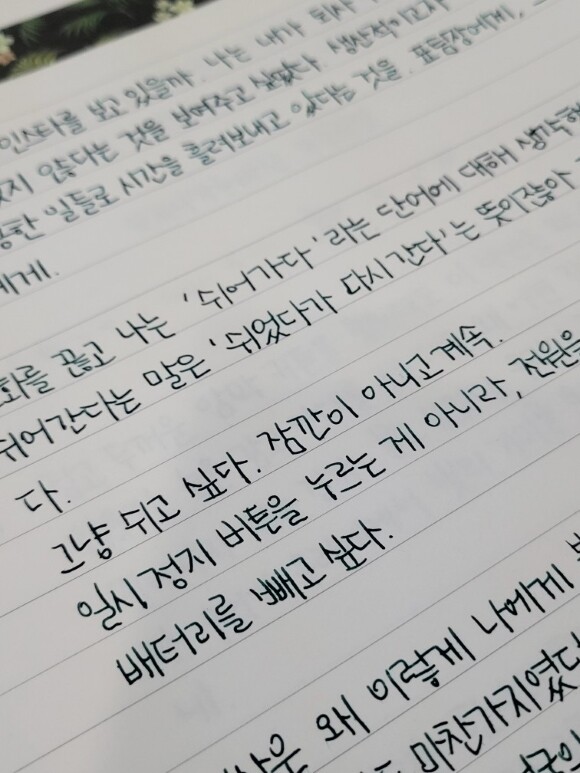 인스타를 보고 있을까. 나는 내가 회사
있지 않다는 것을 보여주고 싶었다. 생산적이고자
일들로 시간을 흘려보내고 있다는 것을. 표범장에게,
에게.
화를 끊고 나는 '쉬어가다'라는 단어에 대해 생각해
쉬어간다는 말은 '쉬었다가 다시 간다'는 뜻이잖아
다.
그냥 쉬고 싶다. 잠깐이 아니고 계속.
일시 정지 버튼을 누르는 게 아니라, 전원을
배터리를 빼고 싶다.
왜 이렇게
마찬가지였다